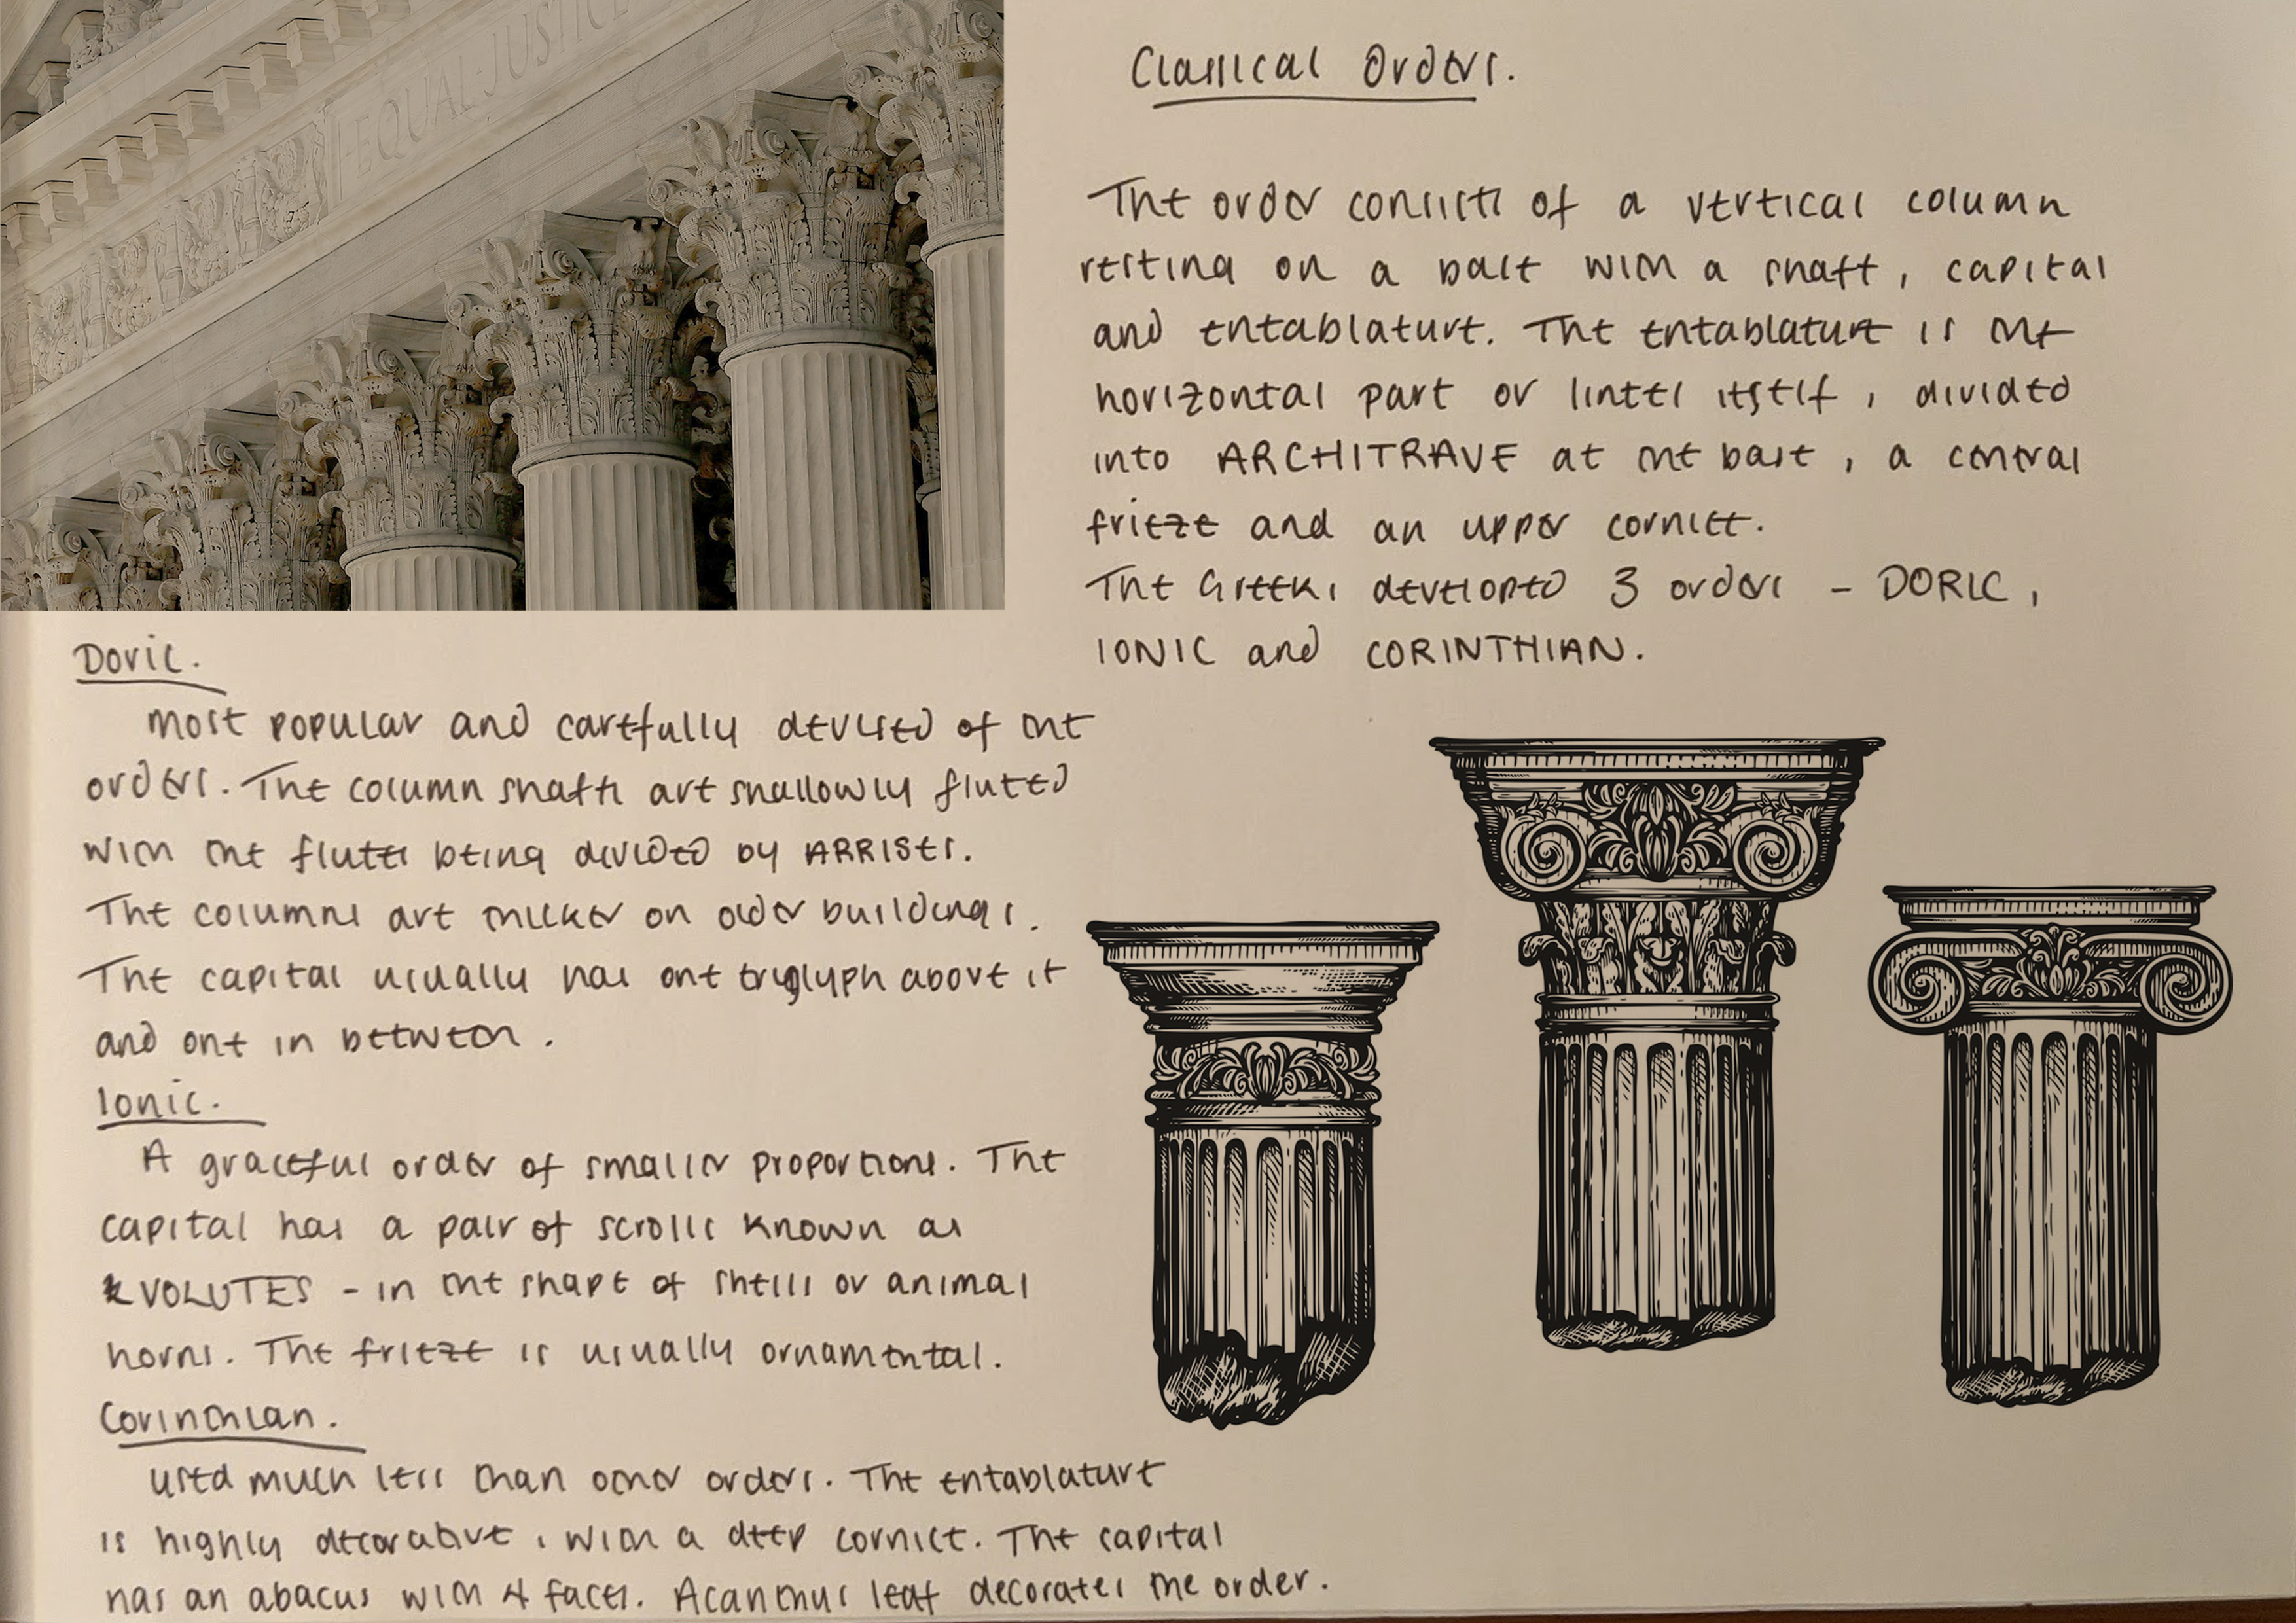 EQUAL·JUSTIC
Classical Orders.
The order consists of a vertical column
resting on a base with a shaft, capital
and entablature. The entablature is the
horizontal part or lintel itself, divided
into ARCHITRAVE at the base, a central
frieze and an upper cornice.
The Greeks developed 3 orders - DORIC,
IONIC and CORINTHIAN.
Doric.
Most popular and carefully devised of the
orders. The column shafts are shallowly fluted
with the flutes being divided by ARRISES.
The columns are thicker on older buildings.
The capital usually has one tryglyph above it
and one in between.
Ionic.
A graceful order of smaller proportions. The
capital has a pair of scrolls known as
VOLUTES - in the shape of shells or animal
horns. The frieze is usually ornamental.
Corinthian.
Used much less than other orders. The entablature
is highly decorative, with a deep cornice. The capital
has an abacus with 4 faces. Acanthus leaf decorates the order.